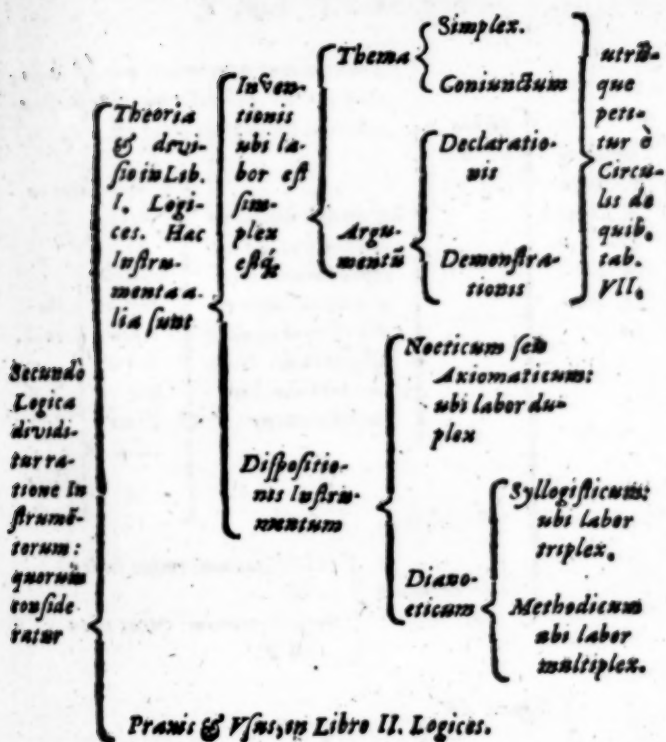 Secundò
Logica
dividi-
tur ra-
tione In
strumē-
torum:
quorum
conside
ratur
Theoria
& divi-
sio in Lib.
I. Logi-
ces. Hac
Instru-
menta a-
lia sunt
Inven-
tionis
ubi la-
bor est
sim-
plex
estq́;
Thema
Simplex.
Coniunctum
Argu-
mentū
Declaratio-
nis
Demonstra-
tionis
utrū-
que
peti-
tur è
Circu-
lis de
quib.
tab.
VII.
Dispositio-
nis Instru-
mentum
Noeticum seu
Axiomaticum:
ubi labor du-
plex
Diano-
eticum
Syllogisticum:
ubi labor
triplex.
Methodicum
ubi labor
multiplex.
Praxis & Vsus, in Libro II. Logices.